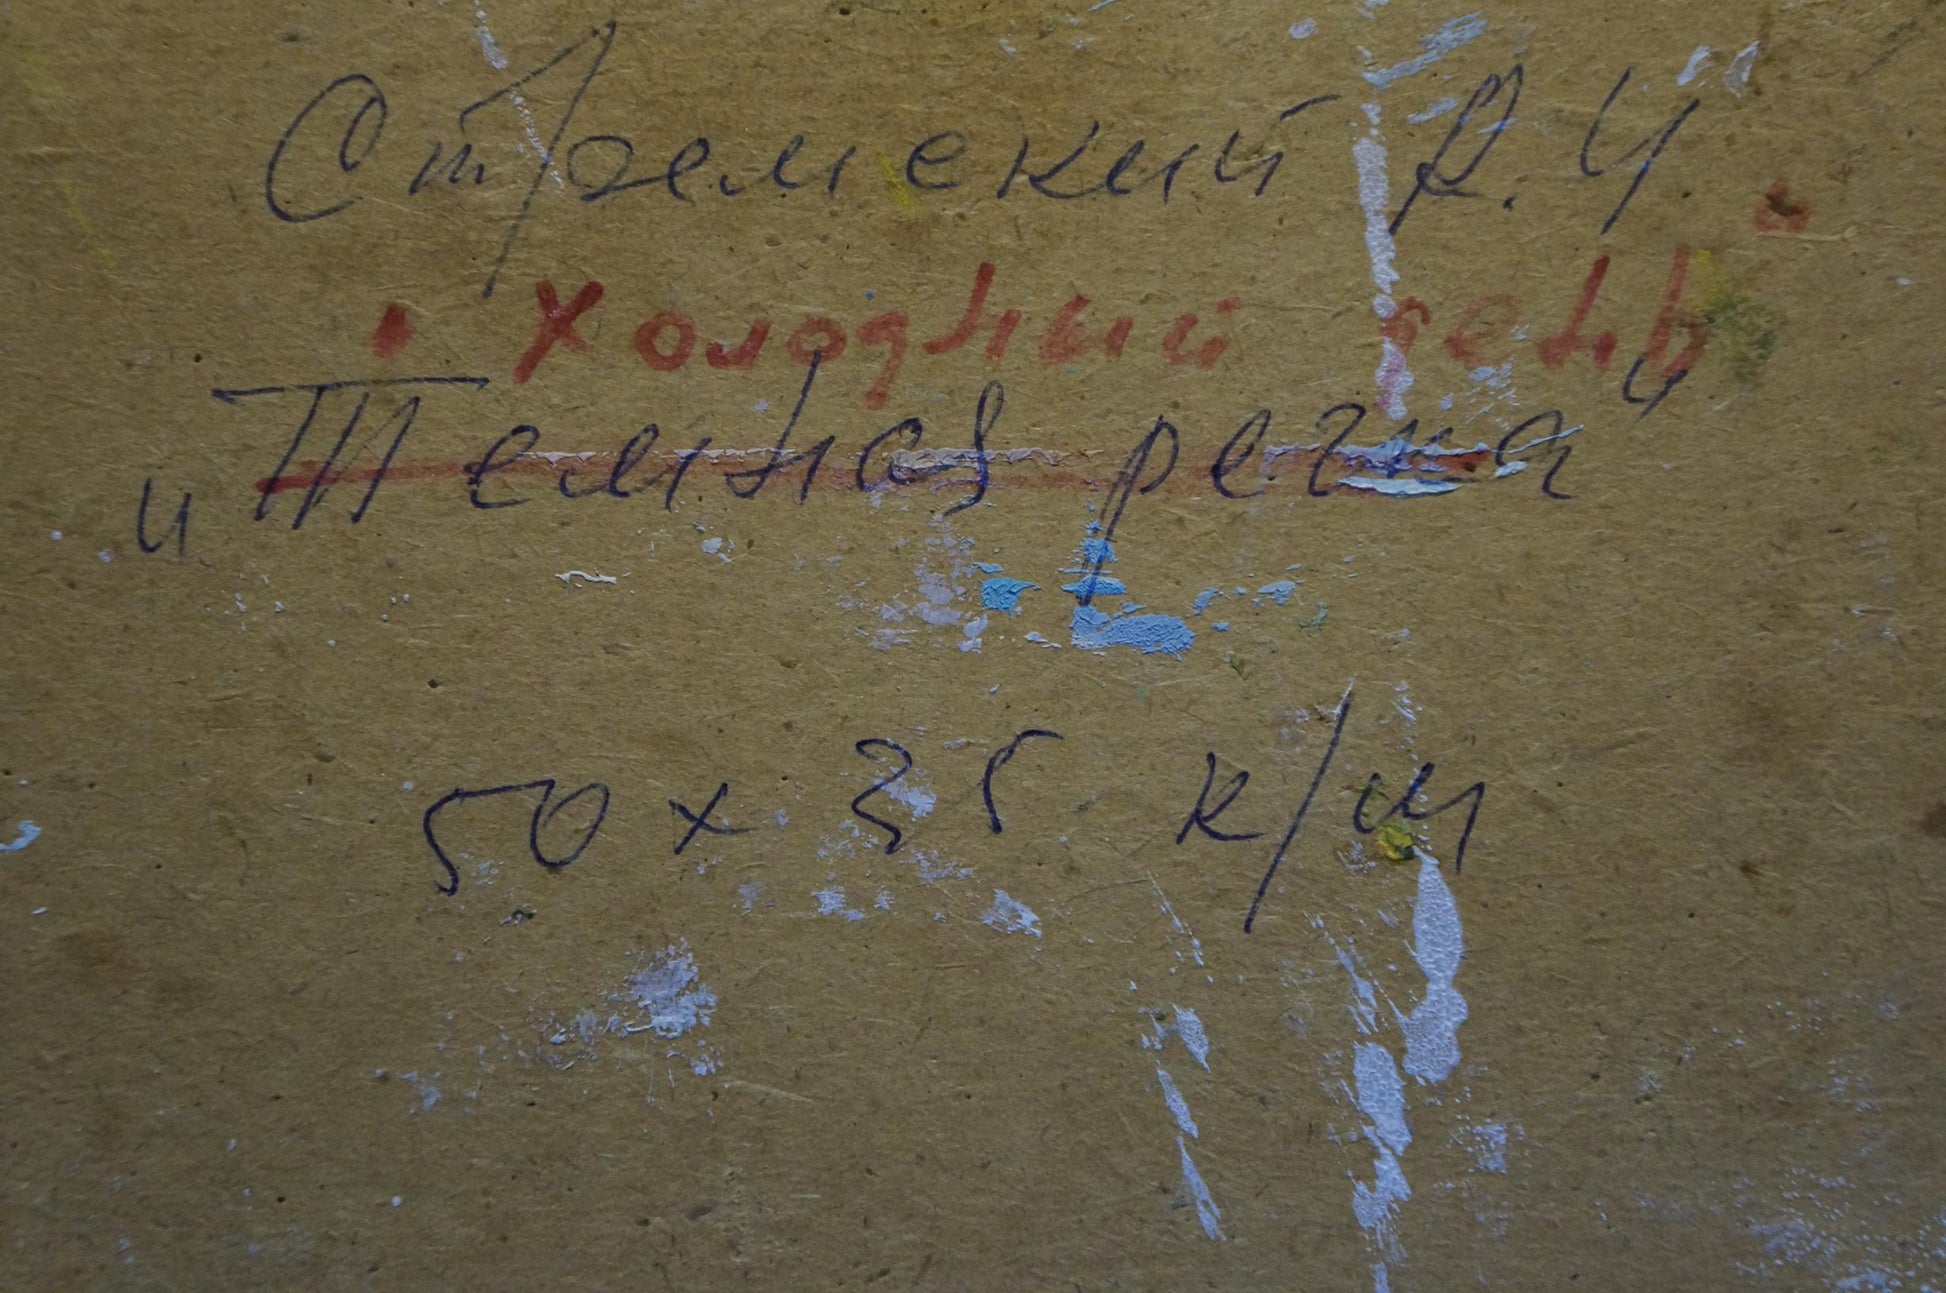 Стремский Я.И
"Холодный день"
„Темная речка"
50 х 35 к/м